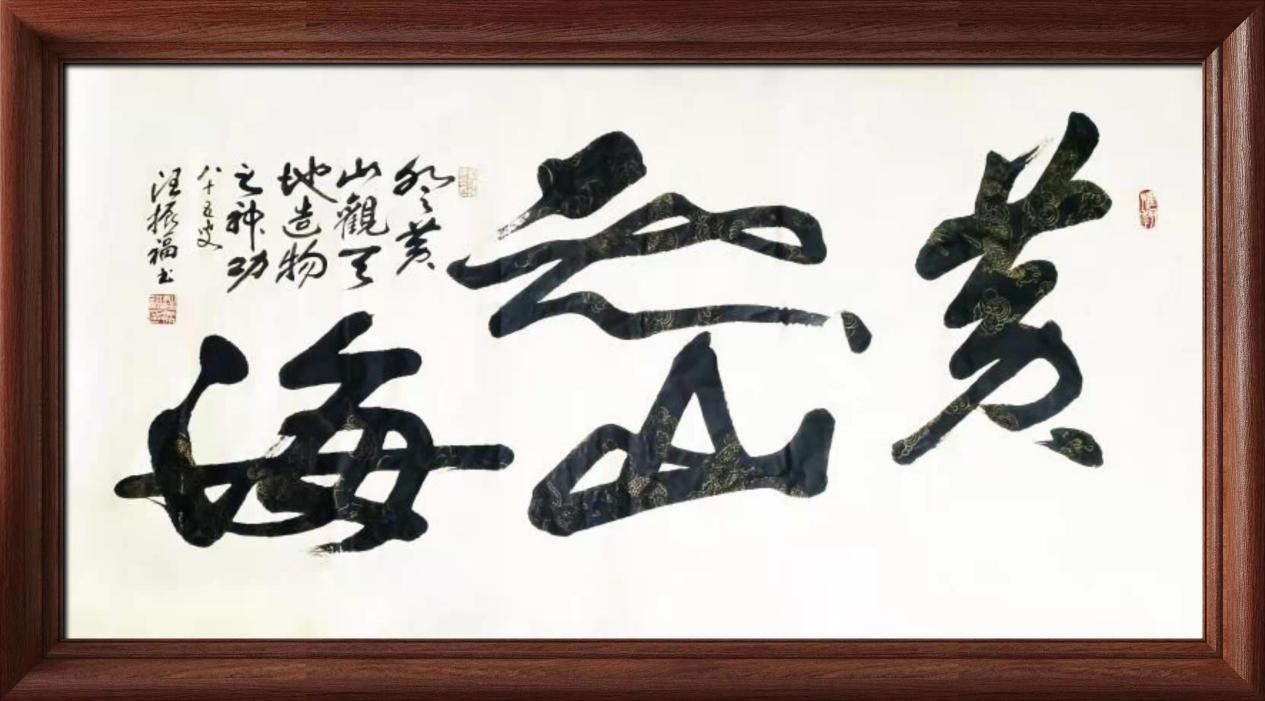 黄山云海
登黄
山觀天
地造物
之神功
八十五叟
汪振福书